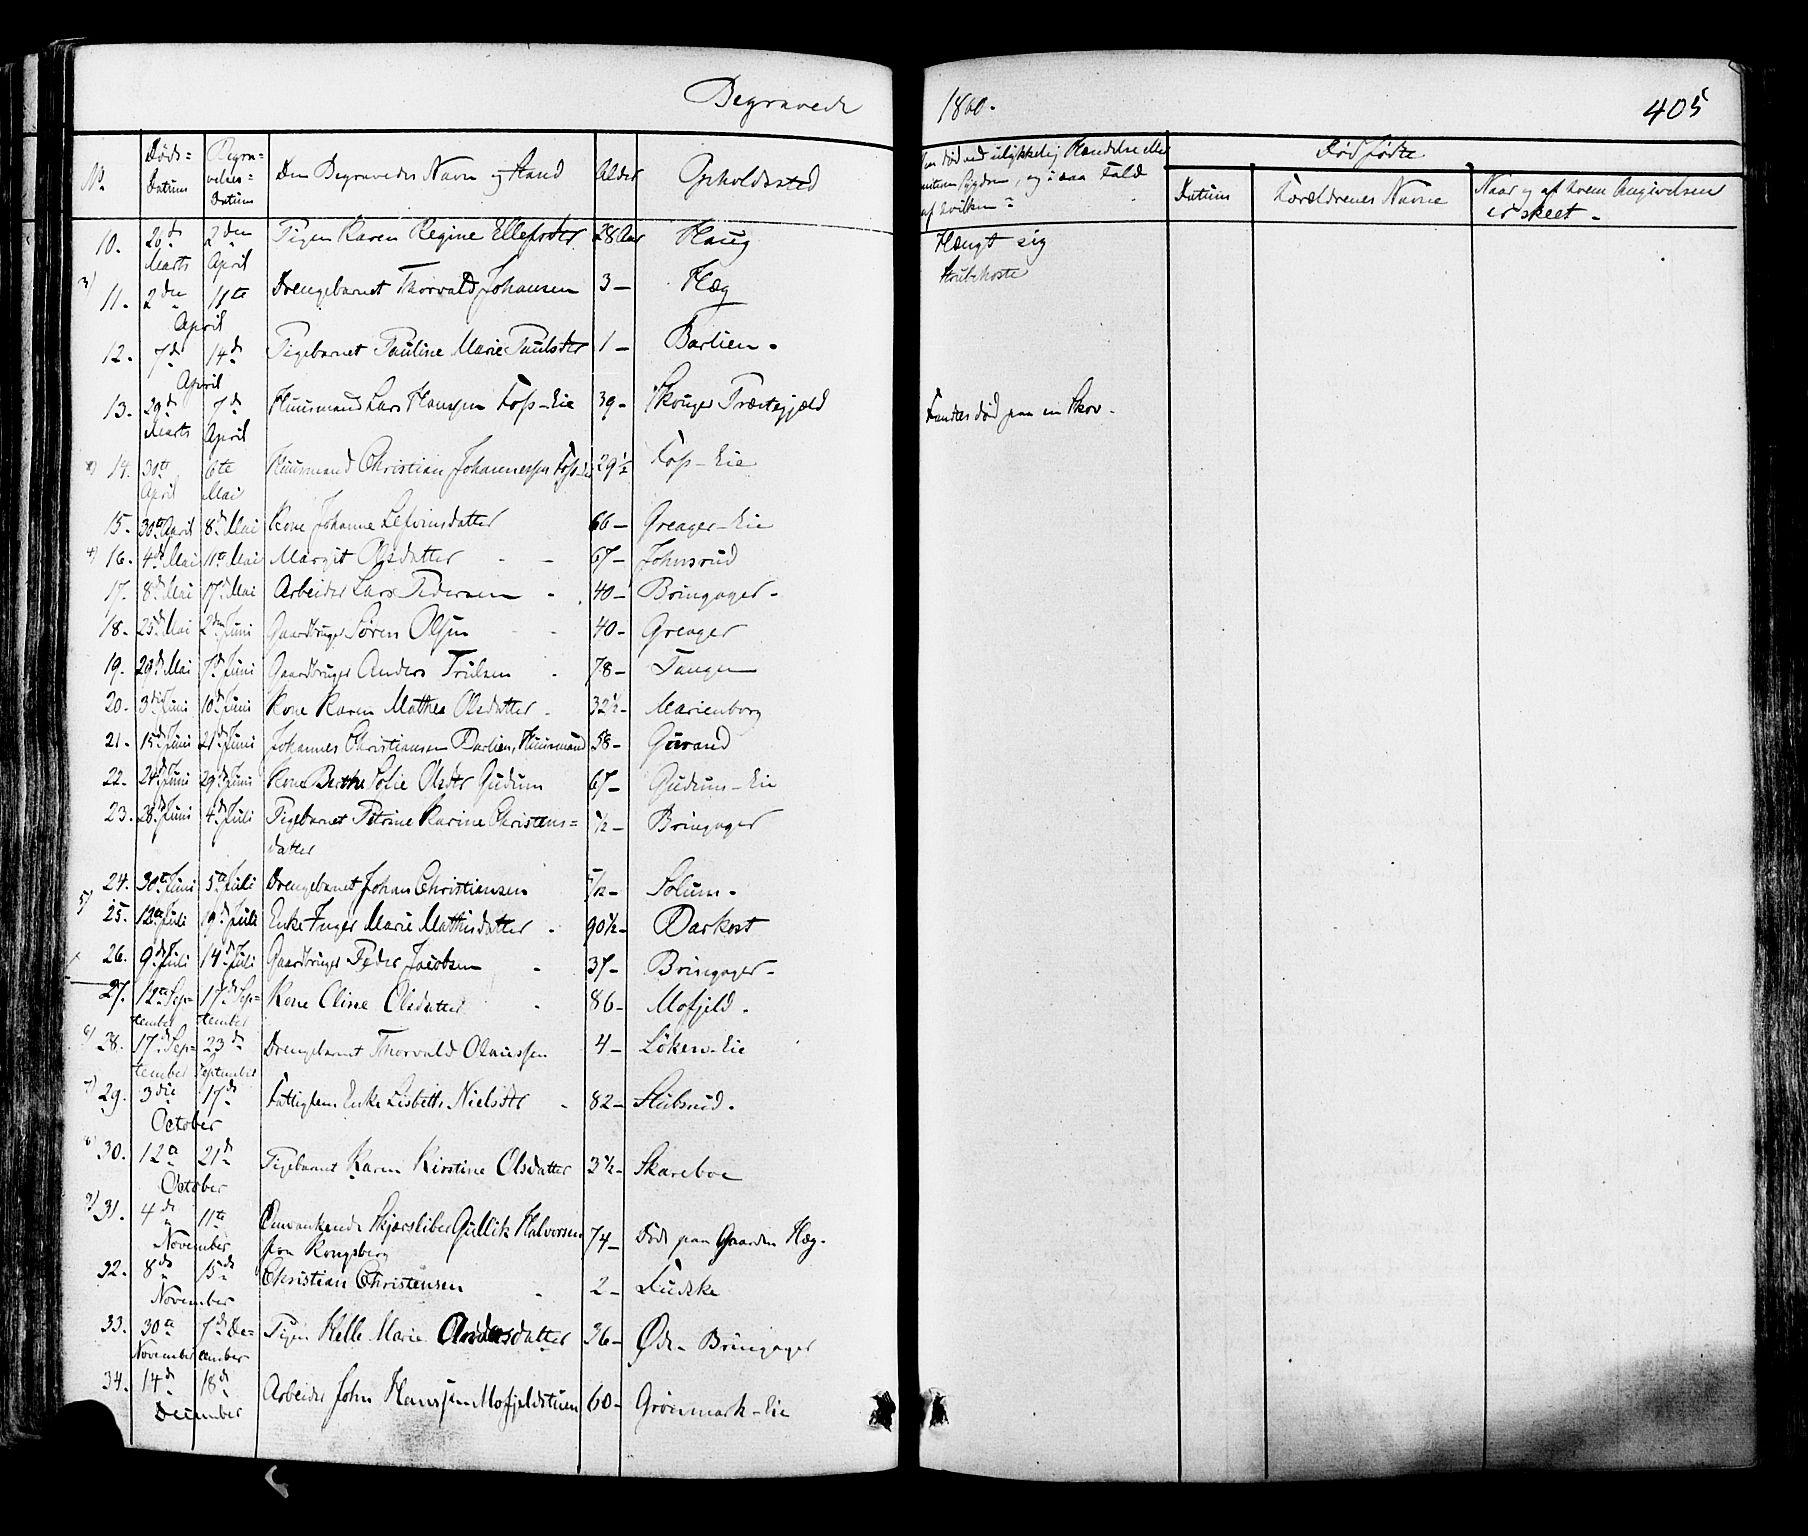 Begravede 1860. 405
No. Døds= Datum Begra= velses= Datum Den Begravedes Navn og Stand Alder Opholdssted
Om død ved ulykkelig Hændelse eller smitsom Sygdom, og i saa Fald af hvilken?
Dødfødte
Datum Forældrenes Navne Naar og af hvem Angivelsen er skeet.
10. 26de Marts 2den April Pigen Karen Regine Ellefsdtr 28 Aar Haug Hængt sig
3) 11. 2den 11te April Drengebarnet Thorvald Johansen 3 - Hæg Strubehoste
12. 7de 14de April Pigebarnet Pauline Marie Paulsdtr 1 - Barlien.
13. 29de Marts 7de April Huusmand Lars Hanssen Fos-Eie 39 - Skouger Præstegjæld Fandtes død paa en Skov.
14. 30te April 6te Mai Huusmand Christian Johannessen Fos-Eie 29½ Fos-Eie
15. 30te April 8de Mai Kone Johanne Lefvinsdatter 66 - Greager-Eie
4) 16. 4de Mai 11te Mai Margit Olsdatter 67 - Johnsrud
17. 8de Mai 17de Mai Arbeider Lars Pedersen 40 - Bringager.
18. 25de Mai 2den Juni Gaardbruger Søren Olsen 40 - Greager
19. 29de Mai 7de Juni Gaardbruger Anders Trulsen 78 - Tangen
20. 3die Juni 10de Juni Kone Karen Mathea Olsdatter 32½ - Marienborg
21. 15de Juni 21de Juni Johannes Christiansen Barlien, Huusmand 58 - Guvand
22. 24de Juni 29de Juni Kone Berthe Sofie Olsdtr Gudum 67 - Gudum-Eie
23. 28de Juni 4de Juli Pigebarnet Petrine Karine Christens=
datter ½ - Bringager
24. 30te Juni 5te Juli Drengebarnet Johan Christiansen Solum.
5) 25. 12te Juli 19de Juli Enke Inger Marie Mathisdatter 90½ - Barkost
26. 9de Juli 14de Juli Gaardbruger Peder Jacobsen 37 - Bringager.
27. 12te September 17de September Kone Oline Olsdatter 86 - Mofjeld.
6) 28. 17de September 23de September Drengebarnet Thorvald Olaussen 4 - Löken-Eie
7) 29. 3die 17de October Fattiglem Enke Lisbeth Nielsdtr 82 - Stubsrud.
8) 30. 12te 21de October Pigebarnet Karen Kirstine Olsdatter 3½ - Skareboe
9) 31. 4de 11te November Omvankende Skjærsliber Gullik Halvorsen
fra Kongsberg 74 - Døde paa Gaarden Hæg.
32. 8de 15de November Christian Christensen 2 - Fudske
33. 30te November 7de December Pigen Helle Marie Andersdatter 36 - Øde-Bringager
34. 14de 18de December Arbeider John Hanssen Mofjeldstuen 60 - Grönmark-Eie